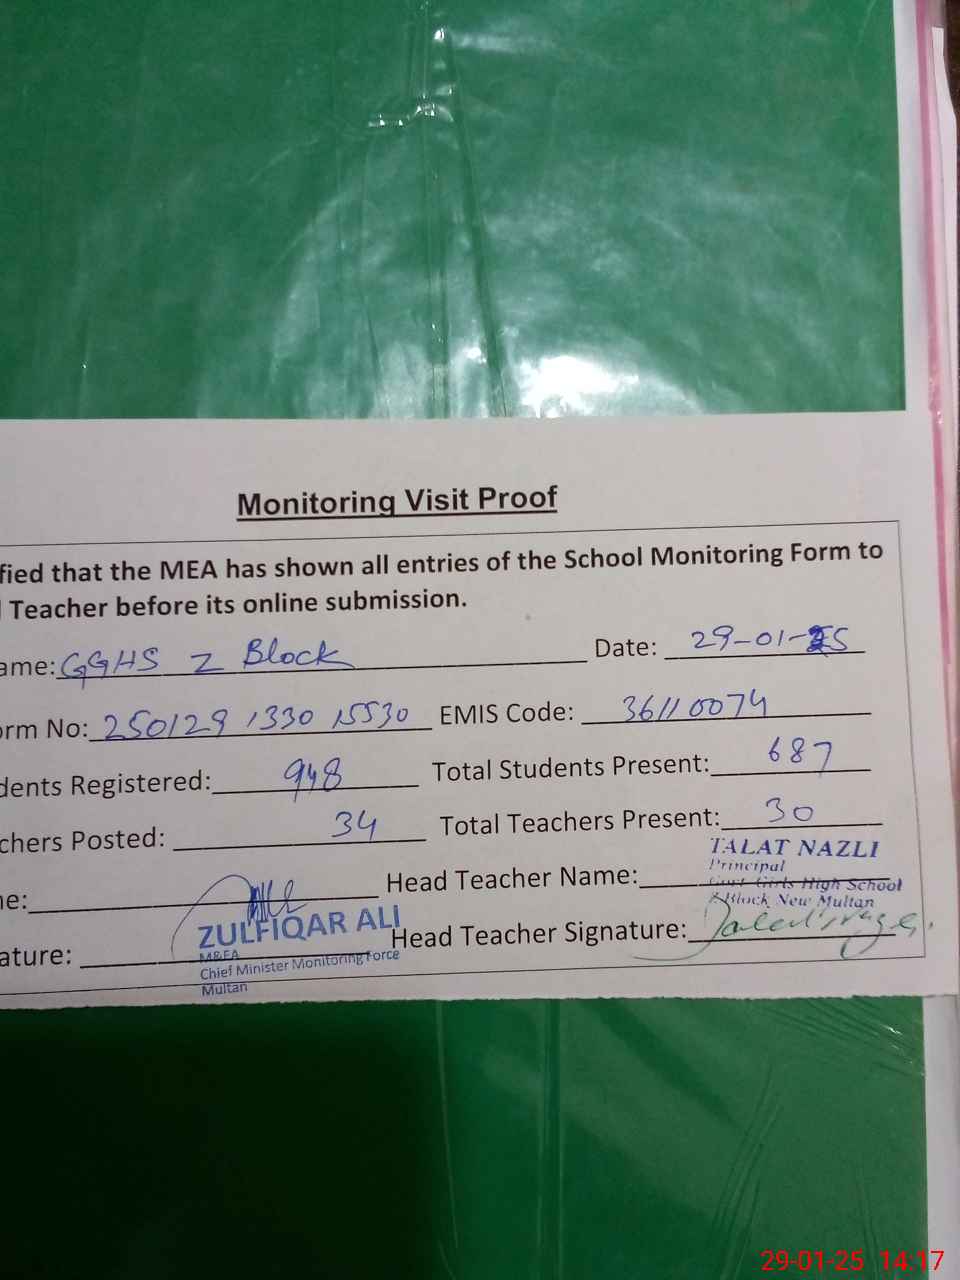 Monitoring Visit Proof
fied that the MEA has shown all entries of the School Monitoring Form to
Teacher before its online submission.
ame: GGHS Z Block Date: 29-01-25
orm No: 250129 1330 15530 EMIS Code: 36110074
dents Registered: 948 Total Students Present: 687
chers Posted: 34 Total Teachers Present: 30
TALAT NAZLI
Principal
ne: Head Teacher Name:
Govt Girls High School
Block New Multan
ZULFIQAR ALI
ature: Head Teacher Signature:
M&EA
Chief Minister Monitoring Force
Multan
29-01-25 14:17